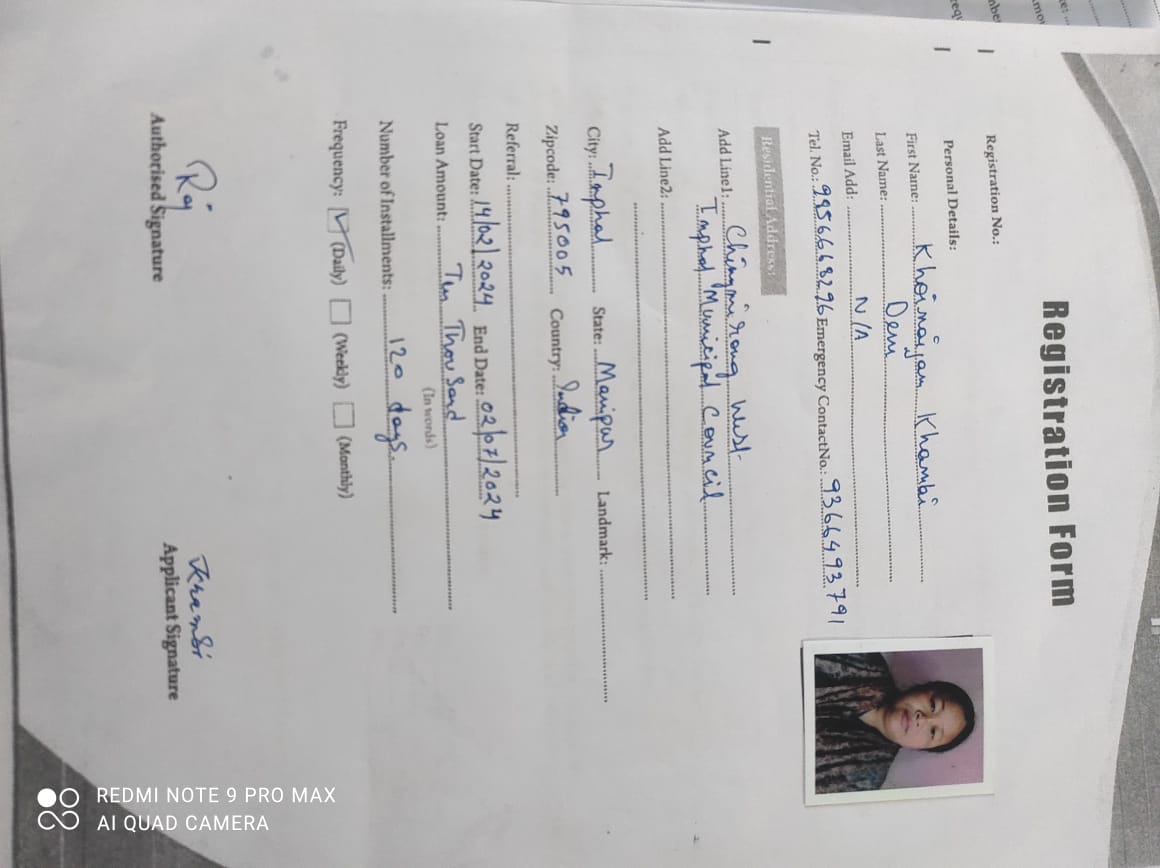 Registration Form
Registration No.:
Personal Details:
First Name: Khoinaijam Khambi
Last Name: Devi
Email Add: N/A
Tel. No.: 9956668296 Emergency ContactNo.: 9366493791
Residential Address:
Add Line1: Chingmirong West
Imphal Municipal Council
Add Line2:
City: Imphal State: Manipur Landmark:
Zipcode: 795005 Country: India
Referral:
Start Date: 14/02/2024 End Date: 02/07/2024
Loan Amount: Ten Thousand
(In words)
Number of Installments: 120 days.
Frequency: (Daily) (Weekly) (Monthly)
Raj
Khambi
Authorised Signature Applicant Signature
REDMI NOTE 9 PRO MAX
AI QUAD CAMERA